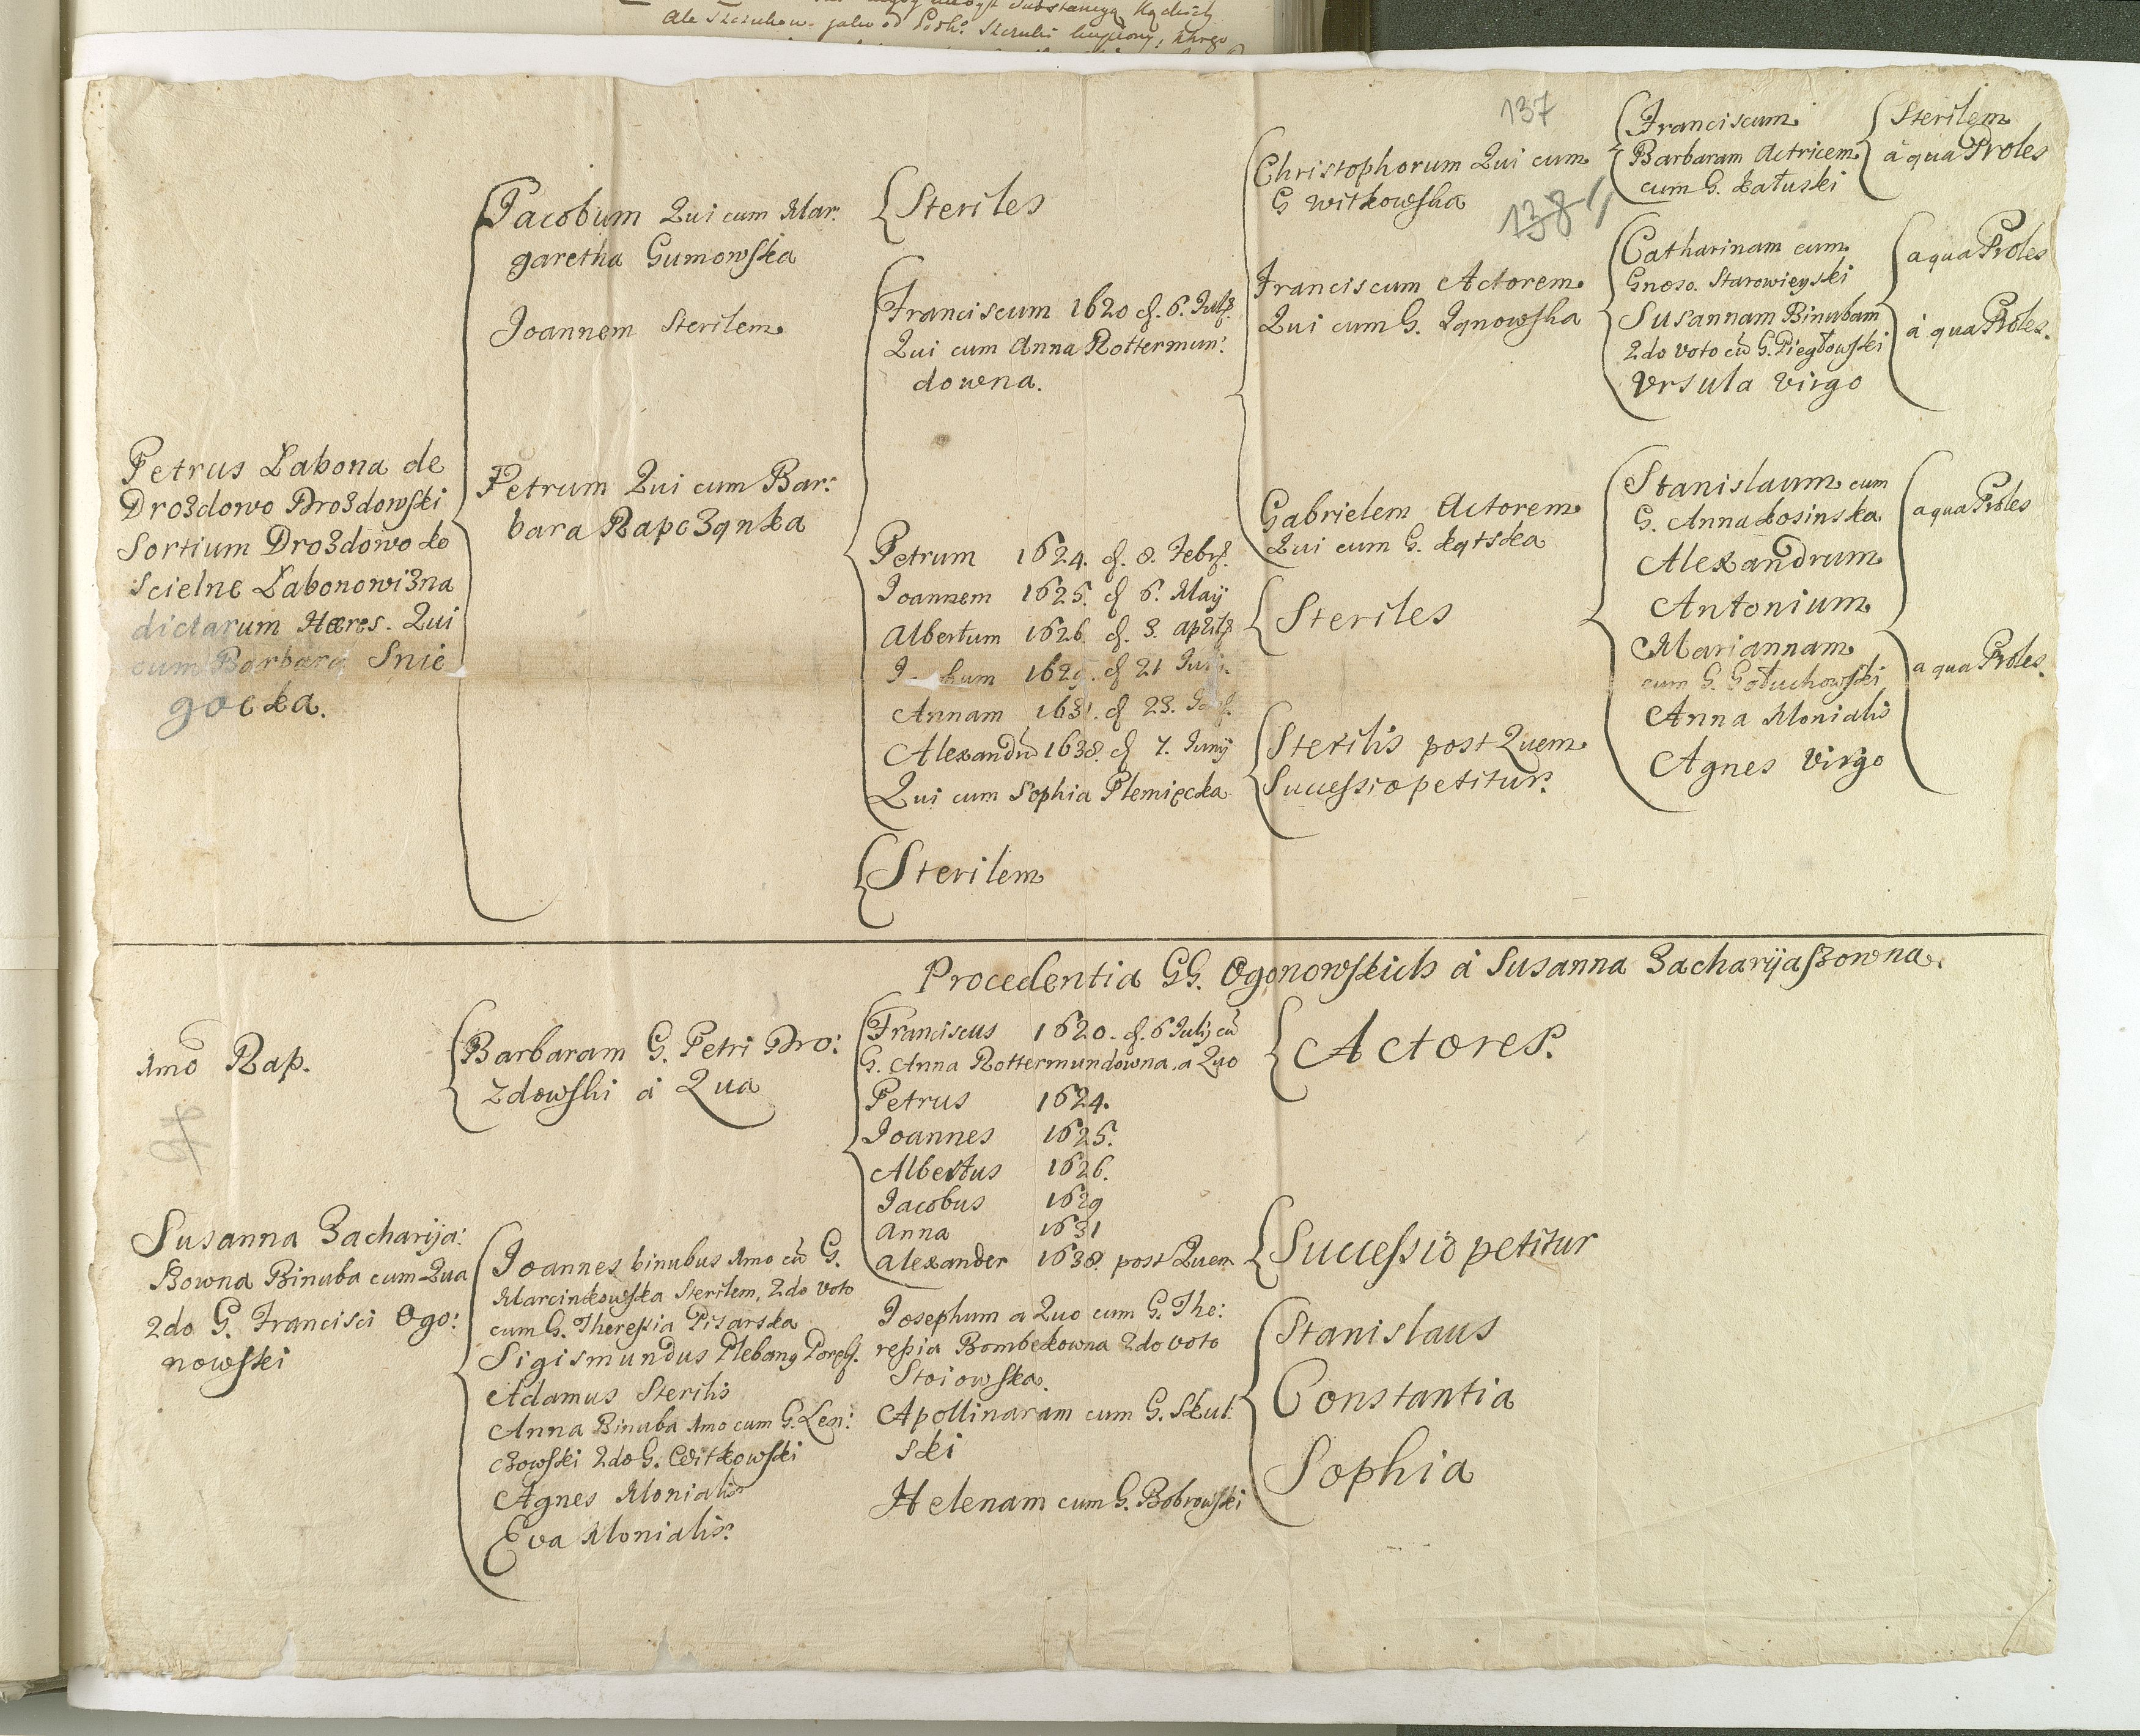 137
138
Petrus Łabona de
Drozdowo Drozdowski
Sortium Drozdowo ko
scielne Łabonowizna
dictarum Hæres. Qui
cum Barbara Snie
gocka.
Jacobum Qui cum Mar:
garetha Gumowska
Joannem Sterilem
Petrum Qui cum Bar:
bara Rapcząnka
Steriles
Franciscum 1620 d. 6. Julÿ
Qui cum Anna Rottermun:
downa.
Petrum 1624. d. 8. Febr.
Joannem 1625. d 6. Maÿ
Albertum 1626. d. 3. April
1629. d 21
Annam 1631. d 23.
Alexandrũ 1638. d 7. Junÿ
Qui cum Sophia Plemięcka
Sterilem
Christophorum Qui cum
G Witkowska
Franciscum Actorem
Qui cum G. Jgnowska
Gabrielem Actorem
Qui cum G. Kątska
Steriles
Sterilis post Quem
Successio petitur.
Franciscum
Barbaram Actricem
cum G. Załuski
Catharinam cum
Gnoso. Starowieyski
Susannam Binubam
2do voto cũ G. Piegłowski
Vrsula Virgo
Stanislaum cum
G. Anna Kosinska
Alexandrum
Antonium
Mariannam
cum G. Gołuchowski
Anna Monialis
Agnes Virgo
Sterilem
à qua Proles
a qua Proles
à qua Proles.
a qua Proles
a qua Proles.
Procedentia GG. Ogonowskich à Susanna Zacharyjaszowna.
1mo Rap.
Barbaram G. Petri Dro:
zdowski à Qua
Franciscus 1620. d. 6 Julij cũ
G. Anna Rottermundowna. a Quo
Petrus 1624.
Joannes 1625.
Albertus 1626.
Jacobus 1629
Anna 1631
Alexander 1638. post Quem
Actores.
Successio petitur
Susanna Zacharyja:
szowna Binuba cum Qua
2do G. Francisci Ogo:
nowski
Joannes binubus 1mo cũ G.
Marcinkowska Sterilem, 2do voto
cum G. Theressia Pisarska
Sigismundus Plebanq
Adamus Sterilis
Anna Binuba 1mo cum G. Len:
czowski 2do G. Witkowski
Agnes Monialis
Eva Monialis.
Josephum a Quo cum G. The:
ressia Bombekowna 2do voto
Stoiowska.
Apollinaram cum G. Skul:
ski
Helenam cum G. Bobrowski
Stanislaus
Constantia
Sophia